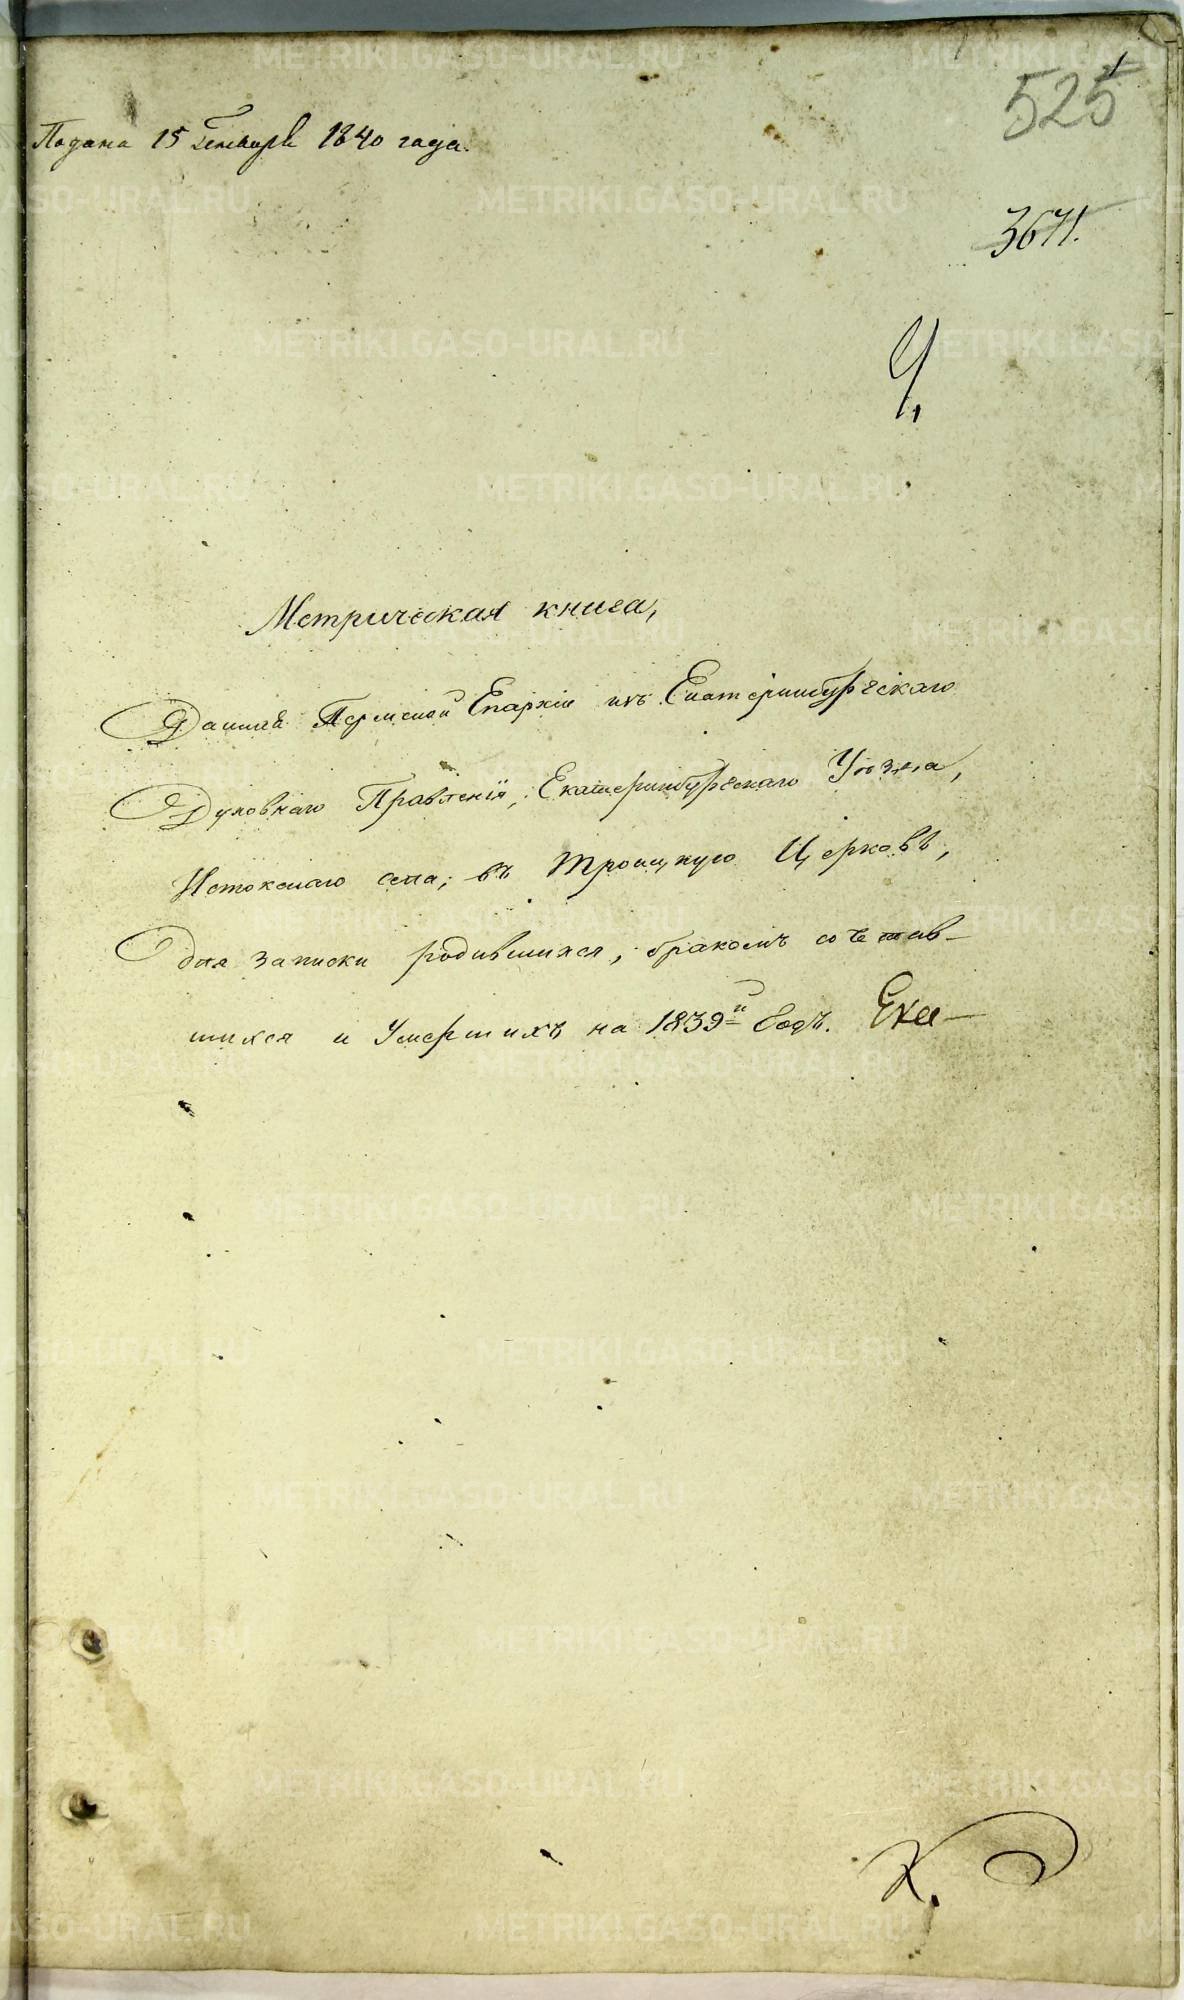 Подана 15 Генваря 1840 года.
525
3671.
Ч.
Метрическая книга,
Данная Пермской Епархіи изъ Екатеринбургскаго
Духовнаго Правленія, Екатеринбургскаго Уѣзда,
Истокскаго села, въ Троицкую Церковь,
для записки родившихся, бракомъ сочетав-
шихся и Умершихъ на 1839й Годъ. Ека-
METRIKI.GASO-URAL.RU